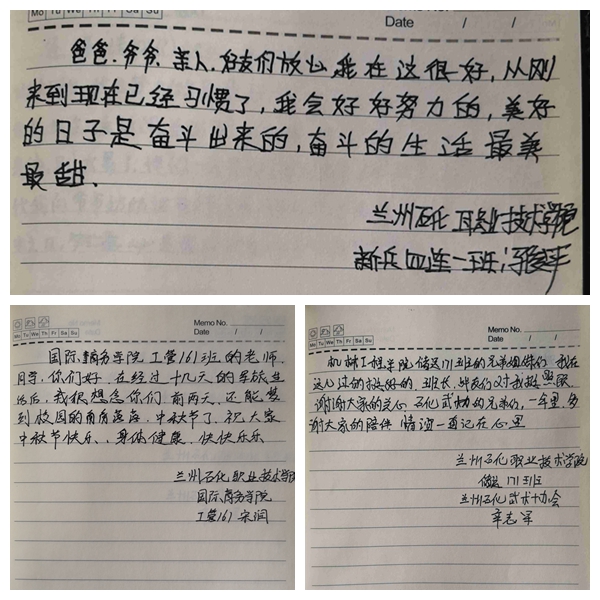 Mo Tu We Th Fr Sa Su
Memo No.
Date / /
爸爸.爷爷.亲人.好友们放心我在这很好,从刚
来到现在已经习惯了,我会好好努力的,美好
的日子是奋斗出来的,奋斗的生活最美
最甜.
兰州石化职业技术学院
新兵四连一班:
Mo Tu We Th Fr Sa Su
Memo No.
Date / /
国际商务学院工管161班的老师.
同学,你们好.在经过十几天的军旅生
活后,我很想念你们前两天,还能梦
到校园的角角落落,中秋节了,祝大家
中秋节快乐、身体健康、快快乐乐
兰州石化职业技术学院
国际商务学院
工管161 宋润
Mo Tu We Th Fr Sa Su
Memo No.
Date / /
机械工程学院储运171班的兄弟姐妹们,我在
这儿过的挺好的,班长,战友们对我挺照顾.
谢谢大家的关心 石化武协的兄弟们,一年里,多
谢大家的陪伴 情谊一直记在心里
兰州石化职业技术学院
储运171班
兰州石化武术协会
辛志军